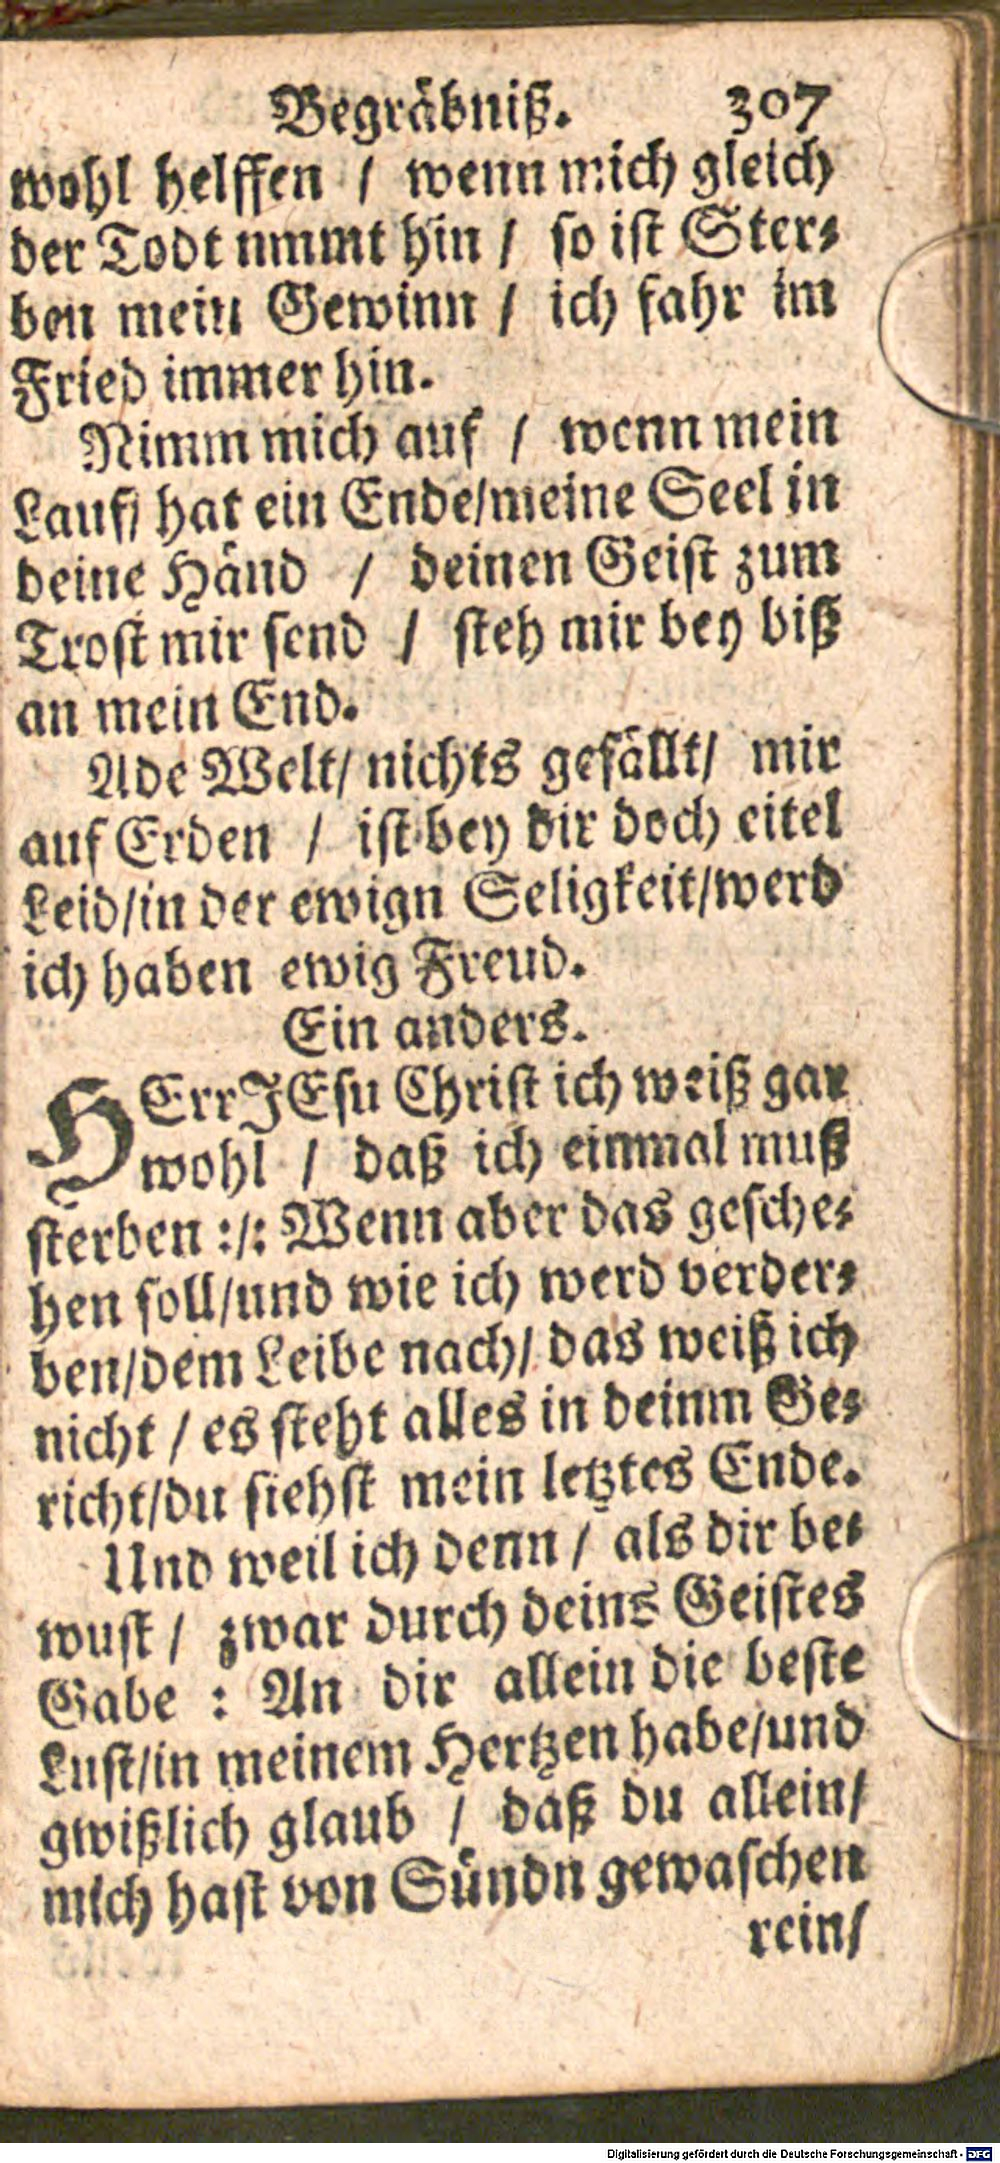 Begräbniß. 307
wohl helffen / wenn mich gleich
der Todt nimmt hin / so ist Ster⸗
ben mein Gewinn / ich fahr im
Fried immer hin.
Nimm mich auf / wenn mein
Lauff hat ein Ende/meine Seel in
deine Händ / deinen Geist zum
Trost mir send / steh mir bey biß
an mein End.
Ade Welt/ nichts gefällt/ mir
auf Erden / ist bey dir doch eitel
Leid/in der ewign Seligkeit/werd
ich haben ewig Freud.
Ein anders.
HErr JEsu Christ ich weiß gar
wohl / daß ich einmal muß
sterben :/: Wenn aber das gesche⸗
hen soll/und wie ich werd verder⸗
ben/dem Leibe nach/ das weiß ich
nicht / es steht alles in deinm Ge⸗
richt/du siehst mein letztes Ende.
Und weil ich denn / als dir be⸗
wust / zwar durch deins Geistes
Gabe : An dir allein die beste
Lust/in meinem Hertzen habe/und
gwißlich glaub / daß du allein/
mich hast von Sündn gewaschen
rein/
Digitalisierung gefördert durch die Deutsche Forschungsgemeinschaft - DFG